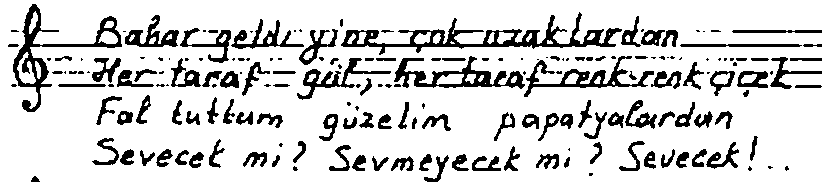 Bahar geldi yine, çok uzaklardan
Her taraf gül, her taraf renk-renk çiçek
Fal tuttum güzelim papatyalardan
Sevecek mi? Sevmeyecek mi? Sevecek!..